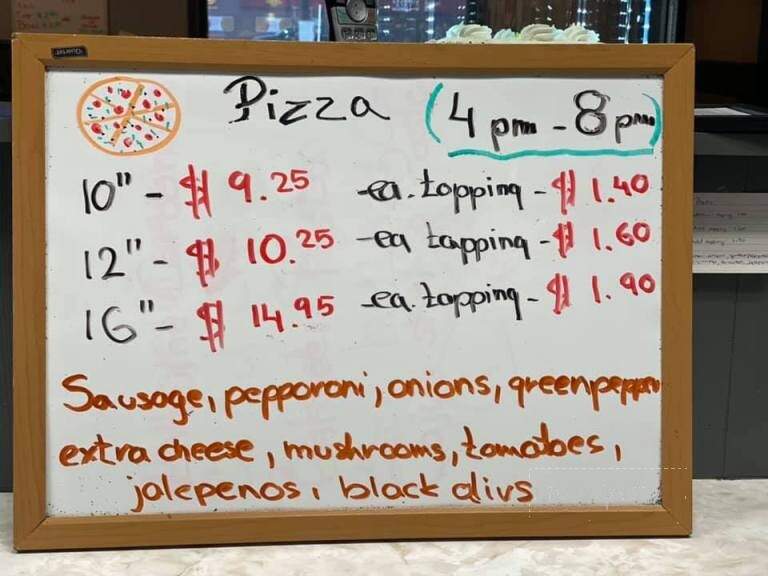 Quartet
Pizza (4 pm - 8 pm)
10" - $ 9.25 -ea. topping - $ 1.40
12" - $ 10.25 -ea tapping - $ 1.60
16" - $ 14.95 -ea. topping - $ 1.90
Sausage, pepporoni, onions, greenpepper
extra cheese, mushrooms, tomatoes,
jalepenos, black olivs